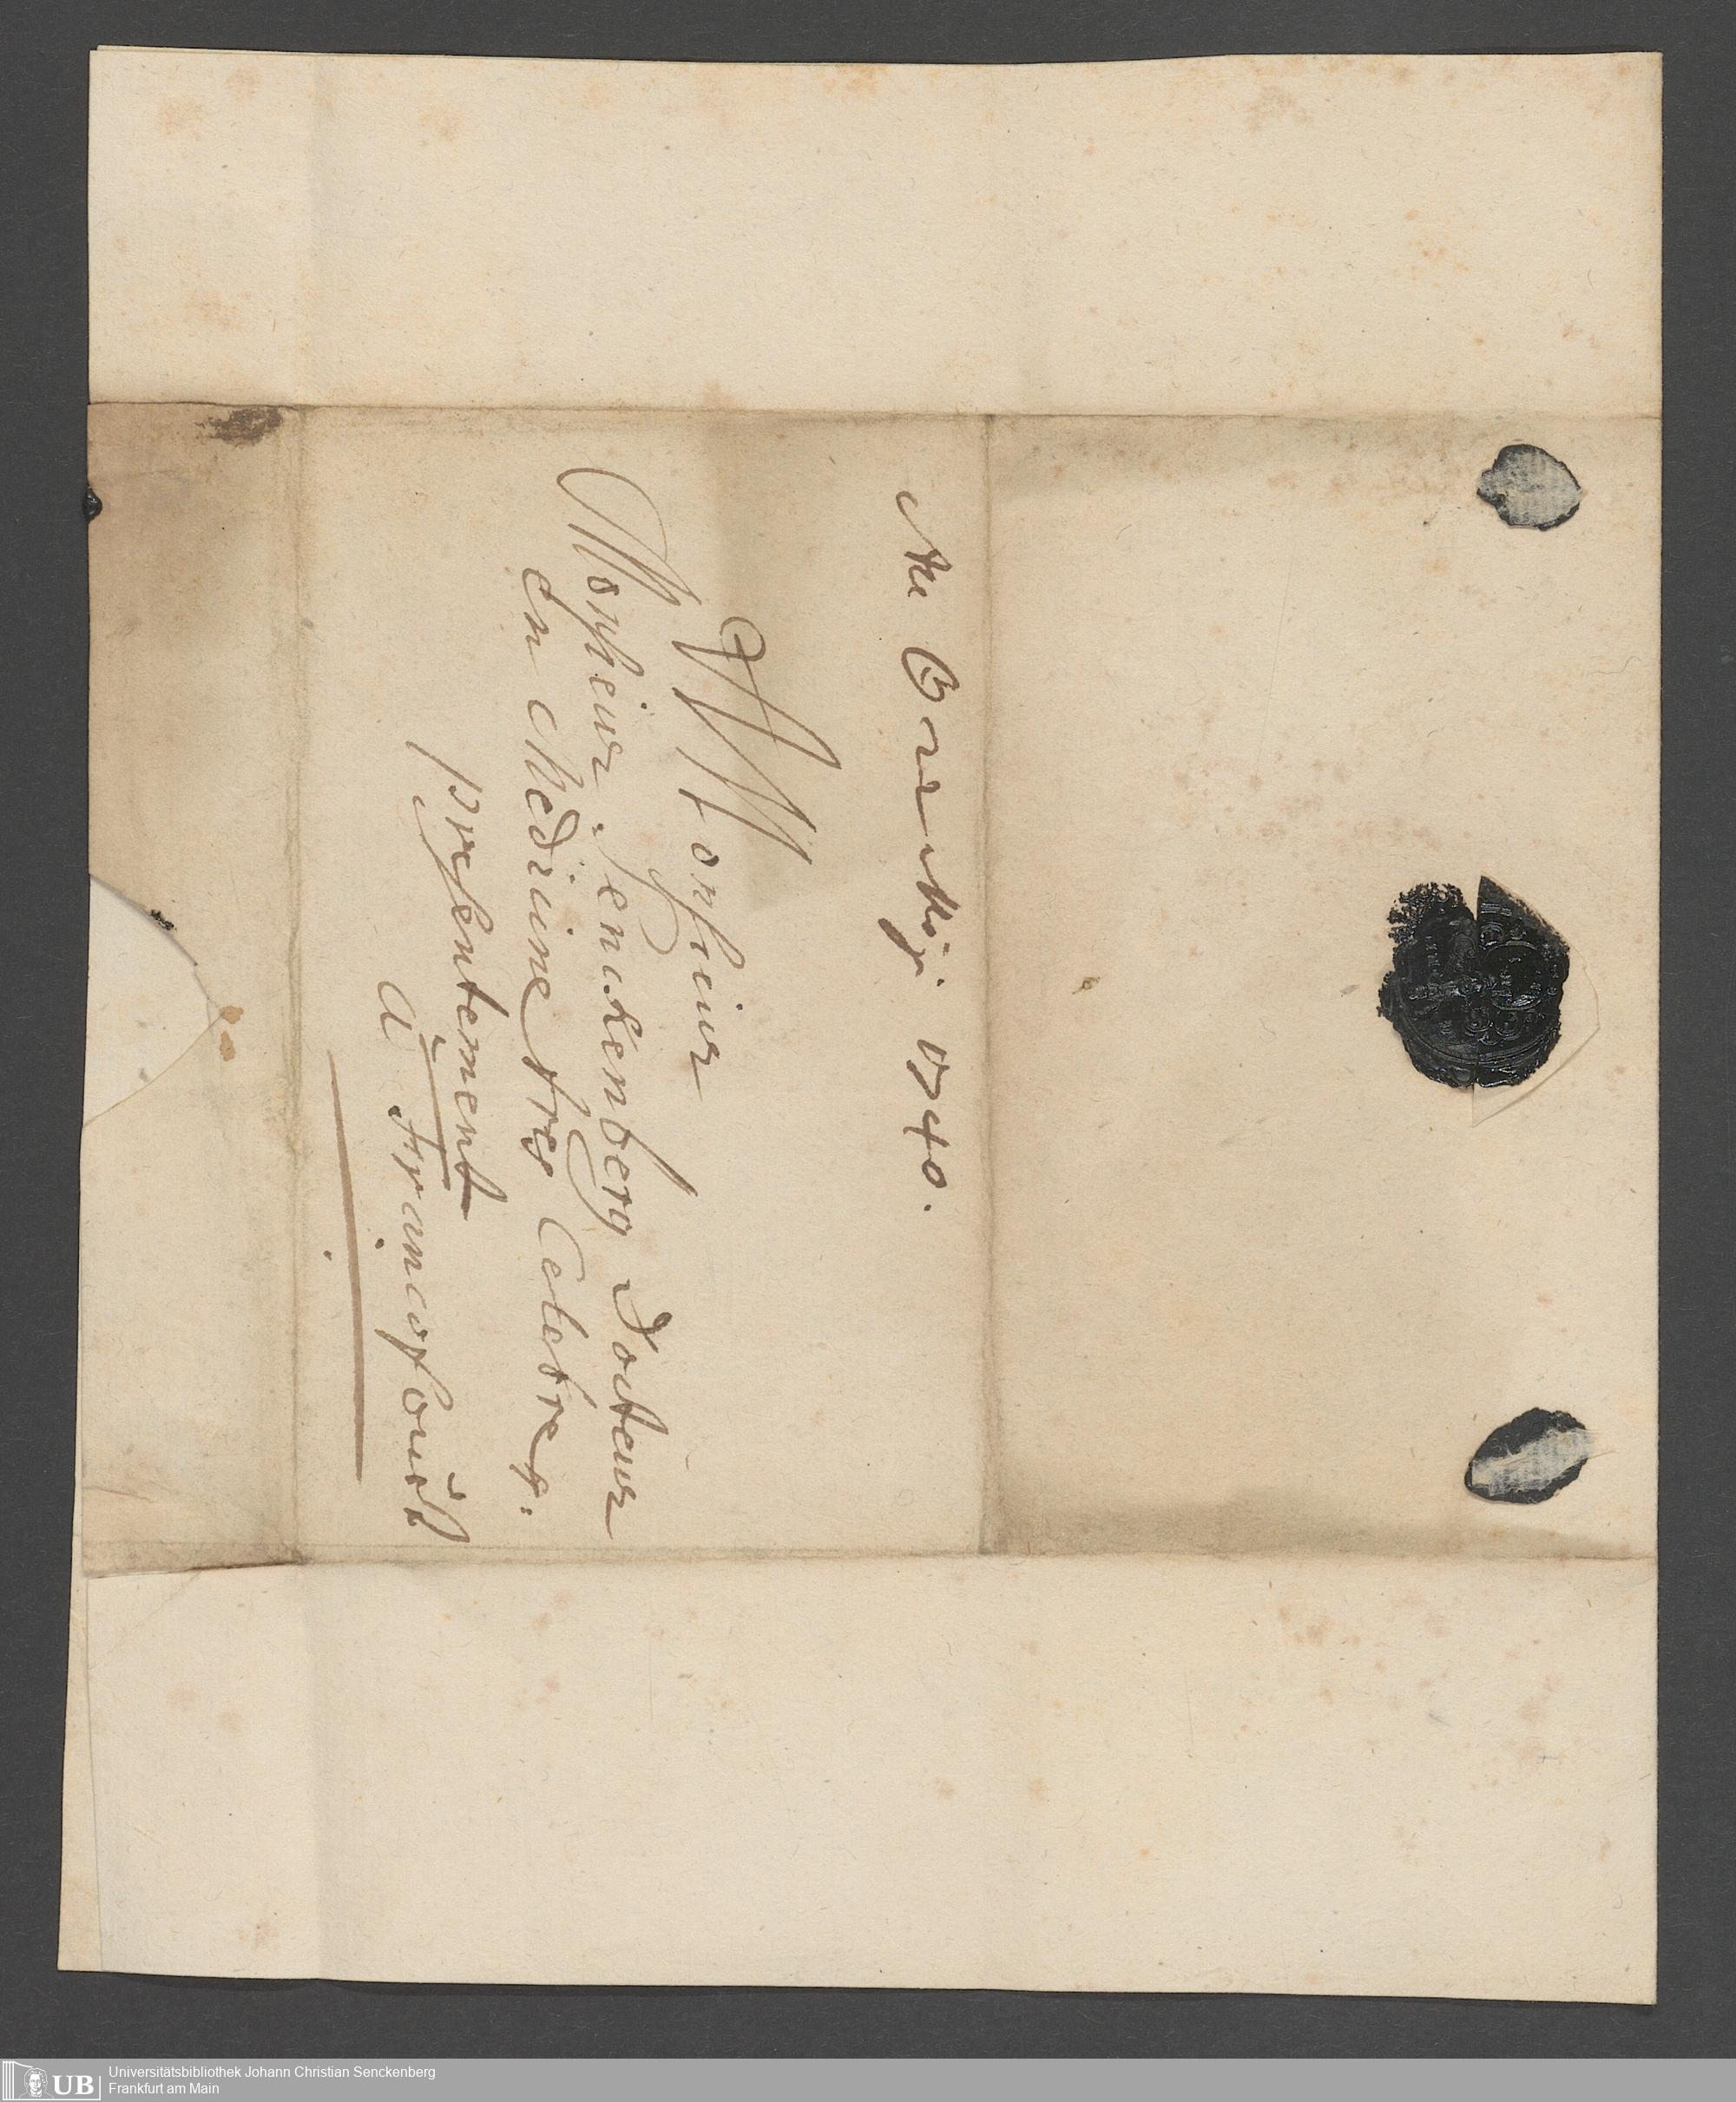 1740.
Monsieur
Monsieur Senckenberg Docteur
en Medicine tres Celebres.
presentement
à Francofourt
UB
Universitätsbibliothek Johann Christian Senckenberg
Frankfurt am Main